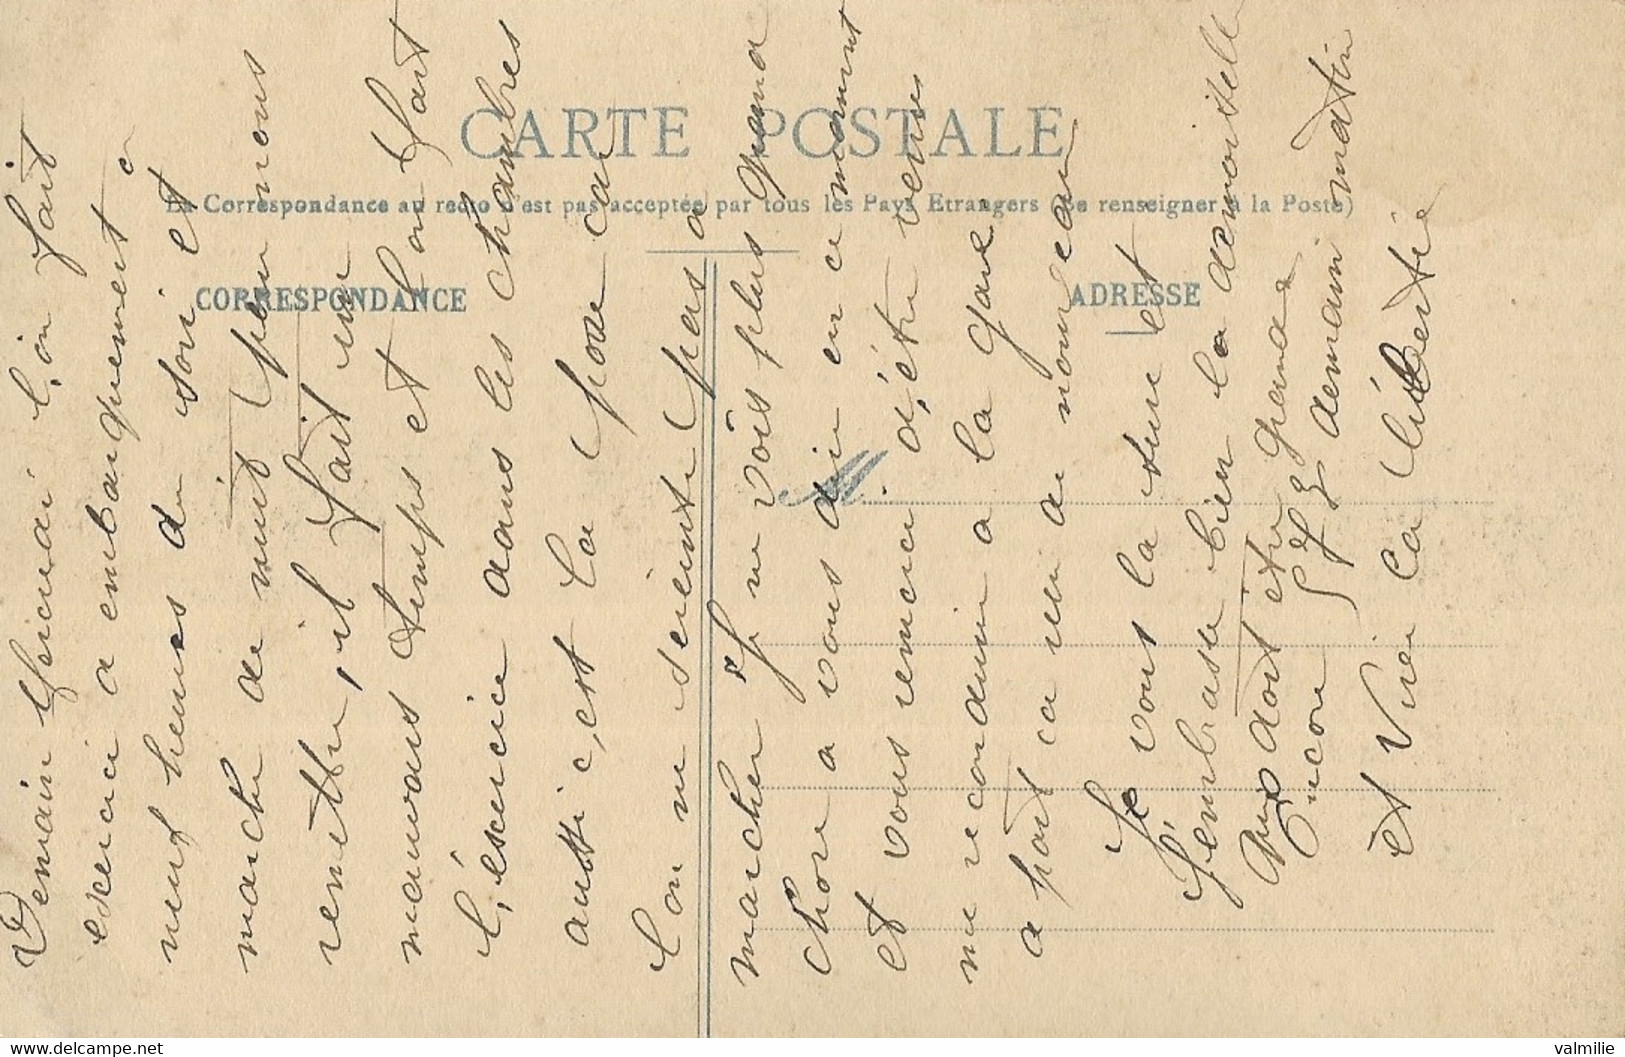 CARTE POSTALE
La Correspondance au recto n'est pas acceptée par tous les Pays Etrangers (se renseigner à la Poste)
CORRESPONDANCE
ADRESSE
M
Demain l,on fait
exercice a embarquement a
neuf heures du soir et
marche de nuit peu nous
remettre, il fait un
mauvais temps et l'on fait
l,éxercice dans les chambres
aussi c,est la pose car
l'on ne seicente pas a
marcher Je ne vois plus grand
chose a vous dire en ce moment
et vous remercie d,être venus
me reconduire a la gare
a part ca rien de nouveau
Je vous la serre et
J'embrasse bien la demoiselle
qui doit être grande
Encore 55 demain matin
et Vive la Liberté
valmilie